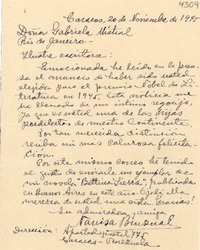 4309
Caracas, 20 de Noviembre de 1945
Doña Gabriela Mistral
Río de Janeiro.
Ilustre escritora:
Emocionada he leído en la prensa
el anuncio de haber sido usted
elegida para el premio Nobel de Li-
teratura en 1945. Esta noticia me
ha llenado de un íntimo regocijo,
ya que es usted una de las hijas
predilectas de nuestro Continente.
Por tan merecida distinción
reciba mi más calurosa felicita-
ción.
Por este mismo correo he tenido
el gusto de enviarle un ejemplar de
mi novela
publicada
en Buenos Aires en este año. Ojalá ella
merezca de usted una
Su admiradora y amiga
Dirección: Apartado postal 748
Caracas - Venezuela